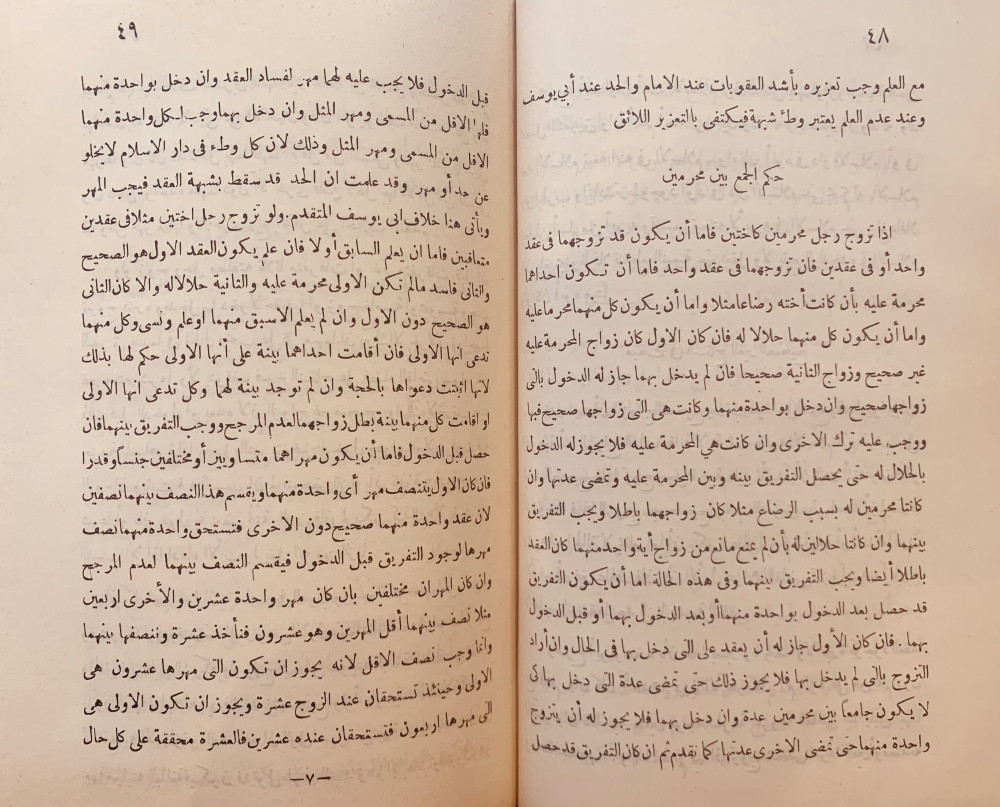 ٤٨
مع العلم وجب تعزيره بأشد العقوبات عند الامام والحد عند أبي يوسف
وعند عدم العلم يعتبر وطئ شبهة فيكتفى بالتعزير اللائق
حكم الجمع بين محرمين
اذا تزوج رجل محرمين كاختين فاما أن يكون قد تزوجهما فى عقد
واحد أو فى عقدين فان تزوجهما فى عقد واحد فاما أن تكون احداهما
محرمة عليه بأن كانت أخته رضاعا مثلا واما أن يكون كل منهما محرما عليه
واما أن يكون كل منهما حلالا له فان كان الاول كان زواج المحرمة عليه
غير صحيح وزواج الثانية صحيحا فان لم يدخل بهما جاز له الدخول بالتى
زواجها صحيح وان دخل بواحدة منهما وكانت هى التى زواجها صحيح فبها
ووجب عليه ترك الاخرى وان كانت هي المحرمة عليه فلا يجوز له الدخول
بالحلال له حتى يحصل التفريق بينه وبين المحرمة عليه وتمضى عدتها وان
كانتا محرمين له بسبب الرضاع مثلا كان زواجهما باطلا ويجب التفريق
بينهما وان كانتا حلالين له بأن لم يمنع مانع من زواج أية واحد منهما كان العقد
باطلا أيضا ويجب التفريق بينهما وفى هذه الحالة اما أن يكون التفريق
قد حصل بعد الدخول بواحدة منهما أو بعد الدخول بهما أو قبل الدخول
بهما . فان كان الأول جاز له أن يعقد على التى دخل بها فى الحال وان أراد
التزوج بالتى لم يدخل بها فلا يجوز ذلك حتى تمضى عدة التى دخل بها كى
لا يكون جامعاً بين محرمين عدة وان دخل بهما فلا يجوز له أن يتزوج
واحدة منهما حتى تمضى الاخرى عدتها كما تقدم ثم ان كان التفريق قد حصل
٤٩
قبل الدخول فلا يجب عليه لهما مهر لفساد العقد وان دخل بواحدة منهما
فلها الاقل من المسمى ومهر المثل وان دخل بهما وجب لكل واحدة منهما
الاقل من المسمى ومهر المثل وذلك لان كل وطء فى دار الاسلام لا يخلو
عن حد أو مهر وقد علمت ان الحد قد سقط بشبهة العقد فيجب المهر
ويأتى هذا خلاف ابى يوسف المتقدم . ولو تزوج رجل اختين مثلا فى عقدين
متعاقبين فاما ان يعلم السابق أو لا فان علم يكون العقد الاول هو الصحيح
والثانى فاسد مالم تكن الاولى محرمة عليه والثانية حلالا له والا كان الثانى
هو الصحيح دون الاول وان لم يعلم الاسبق منهما او علم ونسى وكل منهما
تدعى انها الاولى فان أقامت احداهما بينة على أنها الاولى حكم لها بذلك
لانها اثبتت دعواها بالحجة وان لم توجد بينة لهما وكل تدعى انها الاولى
او اقامت كل منهما بينة بطل زواجهما لعدم المرجح ووجب التفريق بينهما فان
حصل قبل الدخول فاما أن يكون مهراهما متساويين أو مختلفين جنساً وقدرا
فان كان الاول يتنصف مهر أى واحدة منهما ويقسم هذا النصف بينهما نصفين
لان عقد واحدة منهما صحيح دون الاخرى فتستحق واحدة منهما نصف
مهرها لوجود التفريق قبل الدخول فيقسم النصف بينهما لعدم المرجح
وان كان المهران مختلفين بان كان مهر واحدة عشرين والأخرى اربعين
مثلا نصف بينهما أقل المهرين وهو عشرون فنأخذ عشرة وننصفها بينهما
وانما وجب نصف الاقل لانه يجوز ان تكون التى مهرها عشرون هى
الاولى وحينئذ تستحقان عند الزوج عشرة ويجوز ان تكون الاولى هى
التى مهرها اربعون فتستحقان عنده عشرين فالعشرة محققة على كل حال
—٧—